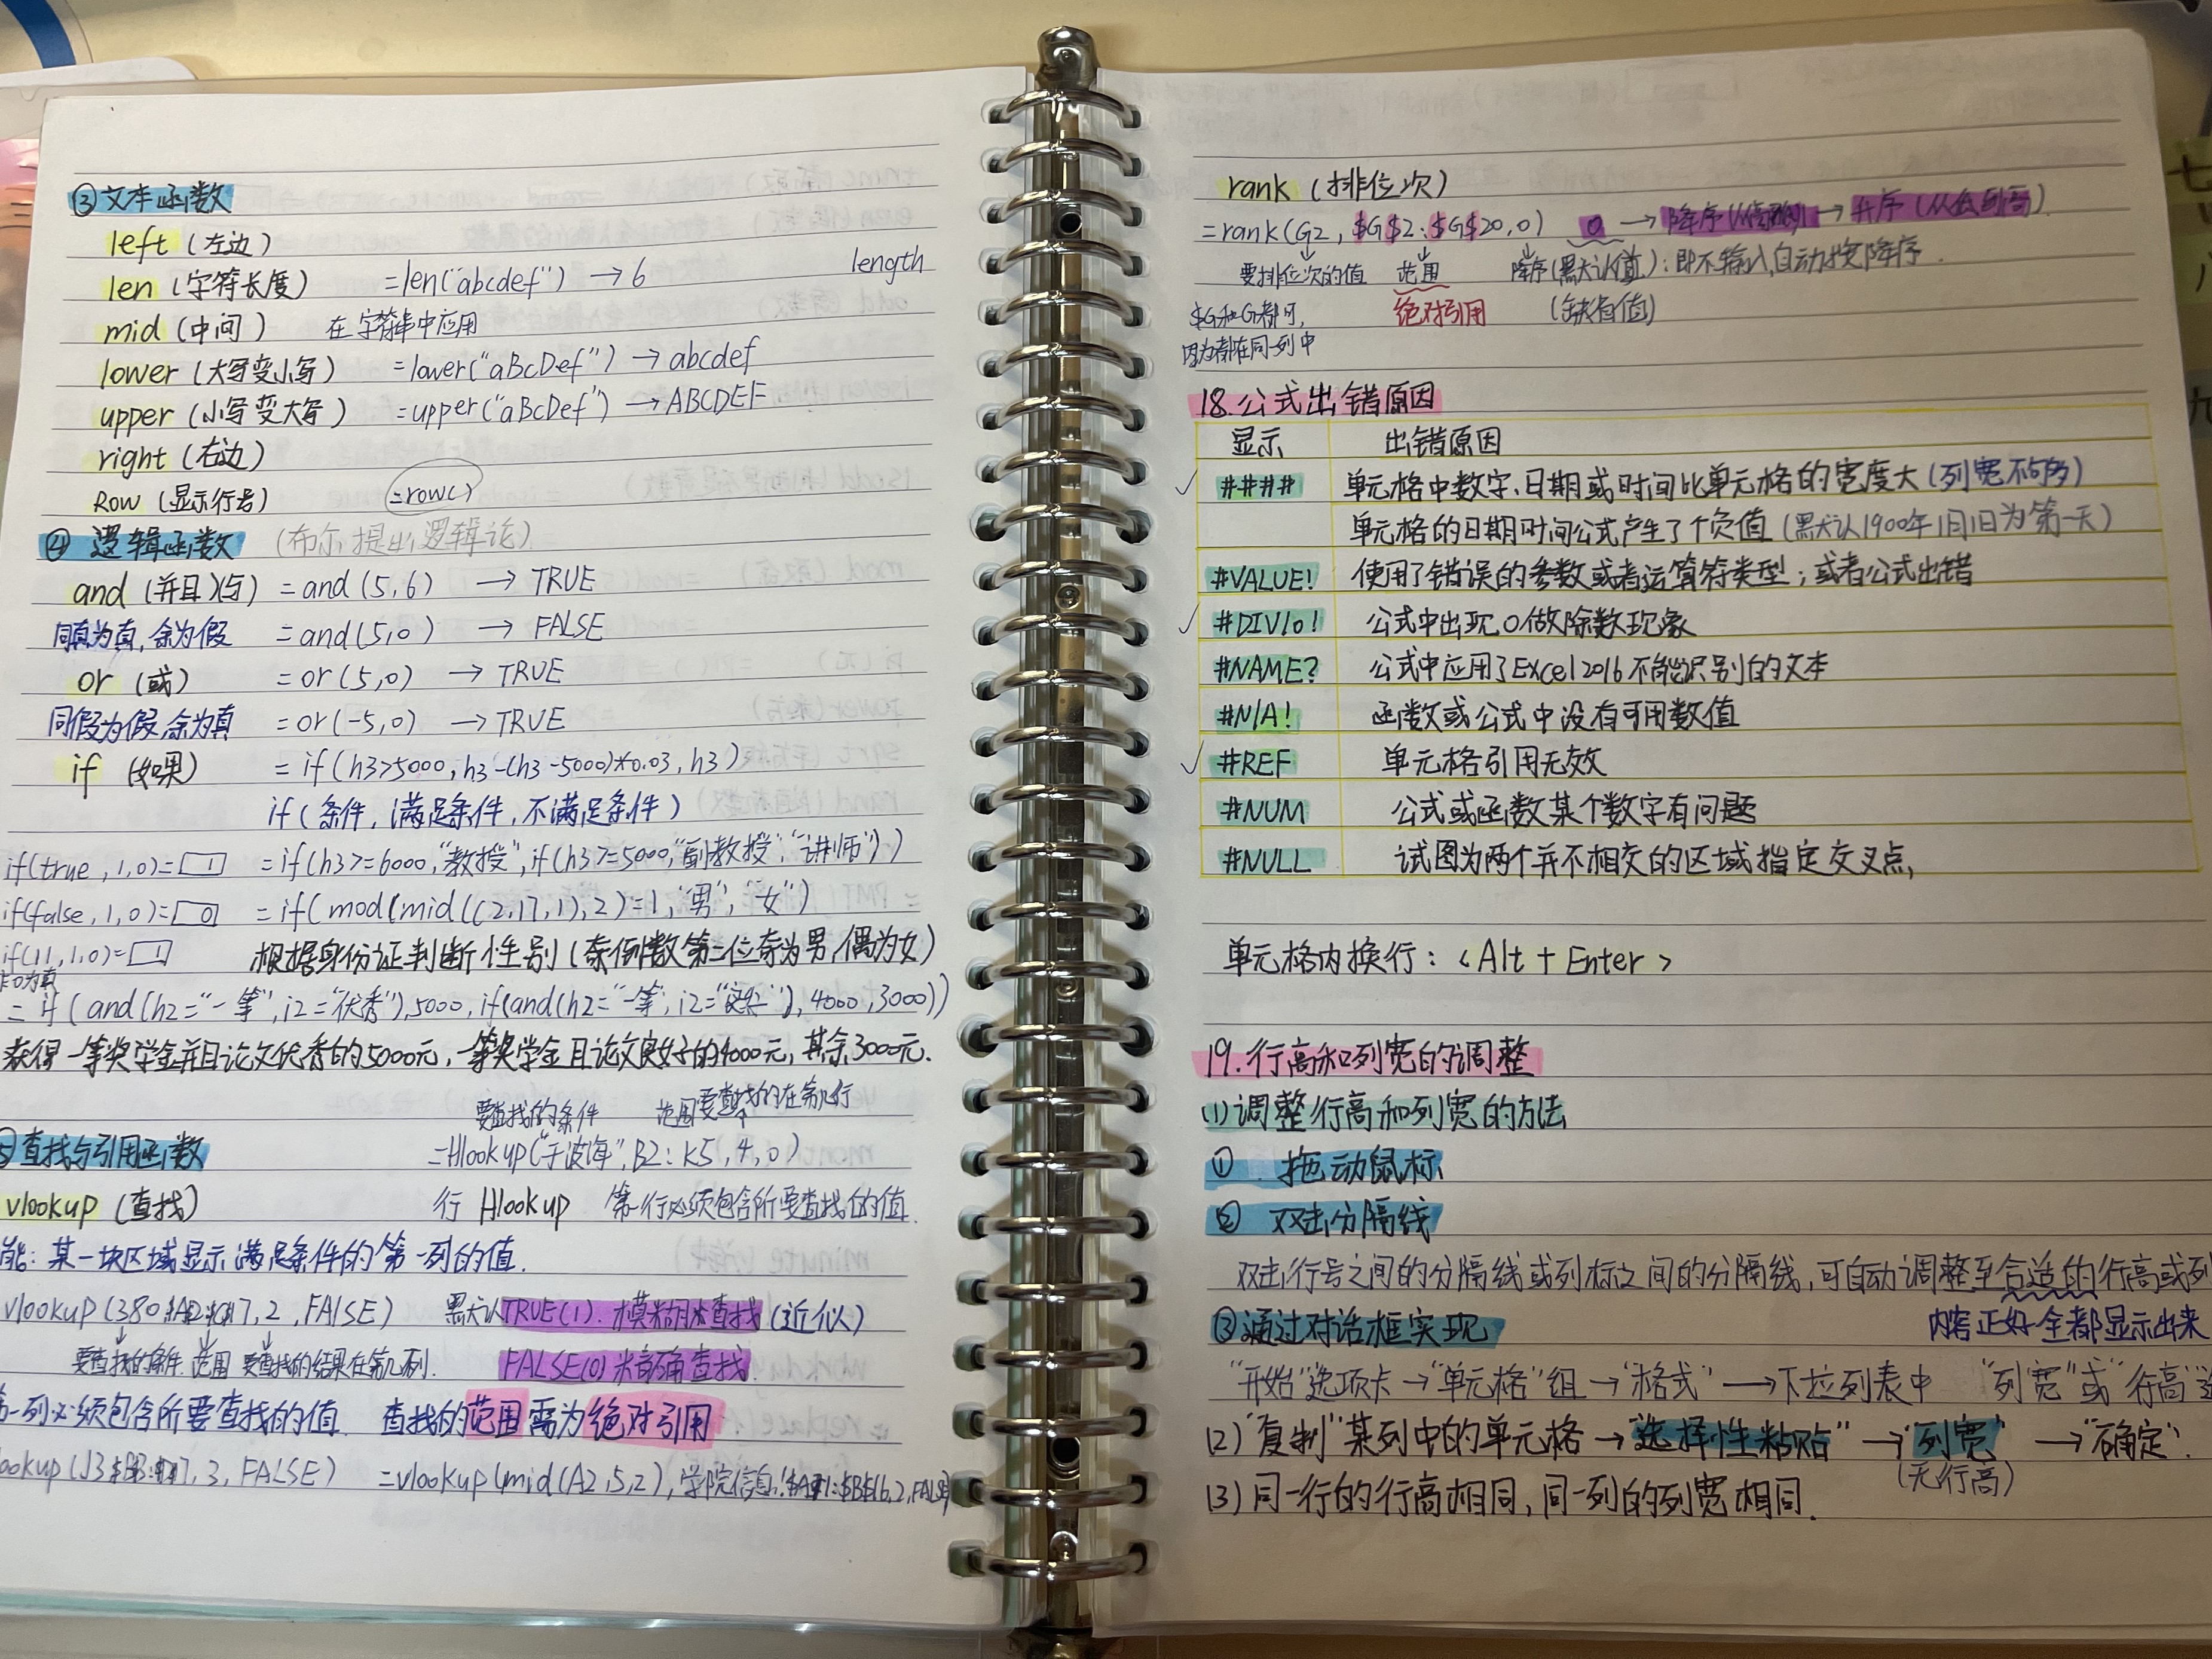 ③文本函数
left (左边)
len (字符长度) =len("abcdef") →6 length
mid (中间) 在字符串中应用
lower (大写变小写) =lower("aBcDef") →abcdef
upper (小写变大写) =upper("aBcDef") →ABCDEF
right (右边)
Row (显示行号) =row()
④ 逻辑函数 (布尔提出逻辑论)
and (并且)(与) =and(5,6) → TRUE
同真为真,余为假 =and(5,0) → FALSE
or (或) =or(5,0) → TRUE
同假为假,余为真 =or(-5,0) → TRUE
if (如果) =if(h3>5000,h3-(h3-5000)*0.03,h3)
if(条件,满足条件,不满足条件)
if(true,1,0)=1 =if(h3>=6000,"教授",if(h3>=5000,"副教授","讲师"))
if(false,1,0)=0 =if(mod(mid(C2,17,1),2)=1,"男","女")
if(11,1,0)=1 根据身份证判断性别(亲倒数第二位奇为男,偶为女)
=if(and(h2="一等",i2="优秀"),5000,if(and(h2="一等",i2="良好"),4000,3000))
获得一等奖学金并且论文优秀的5000元,一等奖学金且论文良好的4000元,其余3000元.
要查找的条件 范围 要查找的在第几行
⑤查找与引用函数 =Hlookup("于波海",B2:K5,4,0)
vlookup (查找) 行 Hlookup 第一行必须包含所要查找的值.
能:某一块区域显示满足条件的第一列的值.
vlookup(380,$A$2:$C$7,2,FALSE) 默认TRUE(1).模糊查找(近似)
要查找的条件 范围 要查找的结果在第几列. FALSE(0)精确查找.
一列必须包含所要查找的值. 查找的范围需为绝对引用
ookup(J3,,3,FALSE) =vlookup(mid(A2,5,2),学院信息!$A$1:$B$16,2,FALSE)
rank (排位次)
=rank(G2,$G$2:$G$20,0) 0→降序 →升序(从低到高)
要排位次的值 范围 降序(默认值):即不输入,自动按降序.
$G和G都可, 绝对引用 (缺省值)
因为都在同一列中
18.公式出错原因
显示 出错原因
✓ #### 单元格中数字、日期或时间比单元格的宽度大(列宽不够多)
单元格的日期时间公式产生了个负值(默认1900年1月1日为第一天)
#VALUE! 使用了错误的参数或者运算符类型;或者公式出错
✓ #DIV/0! 公式中出现0做除数现象
#NAME? 公式中应用了Excel2016不能识别的文本
#N/A! 函数或公式中没有可用数值
✓ #REF 单元格引用无效
#NUM 公式或函数某个数字有问题
#NULL 试图为两个并不相交的区域指定交叉点,
单元格内换行:<Alt + Enter>
19.行高和列宽的调整
(1)调整行高和列宽的方法
① 拖动鼠标
② 双击分隔线
双击行号之间的分隔线或列标之间的分隔线,可自动调整至合适的行高或列
③通过对话框实现 内容正好全都显示出来
"开始"选项卡→"单元格"组→"格式"→下拉列表中 "列宽"或"行高"
(2)"复制"某列中的单元格→"选择性粘贴"→"列宽"→"确定".
(无行高)
(3)同一行的行高相同,同一列的列宽相同.